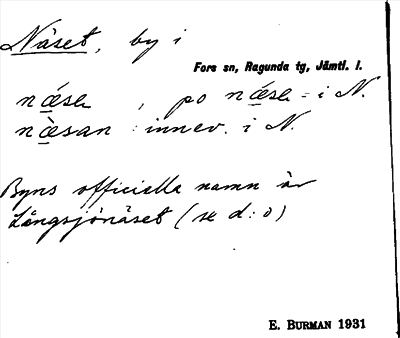 Näset, by i
Fors sn, Ragunda tg, Jämtl. l.
næ̀se , po næ̀se = i N.
næ̀san : innev. i N.
Byns officiella namn är
Långsjönäset (se d:o)
E. BURMAN 1931